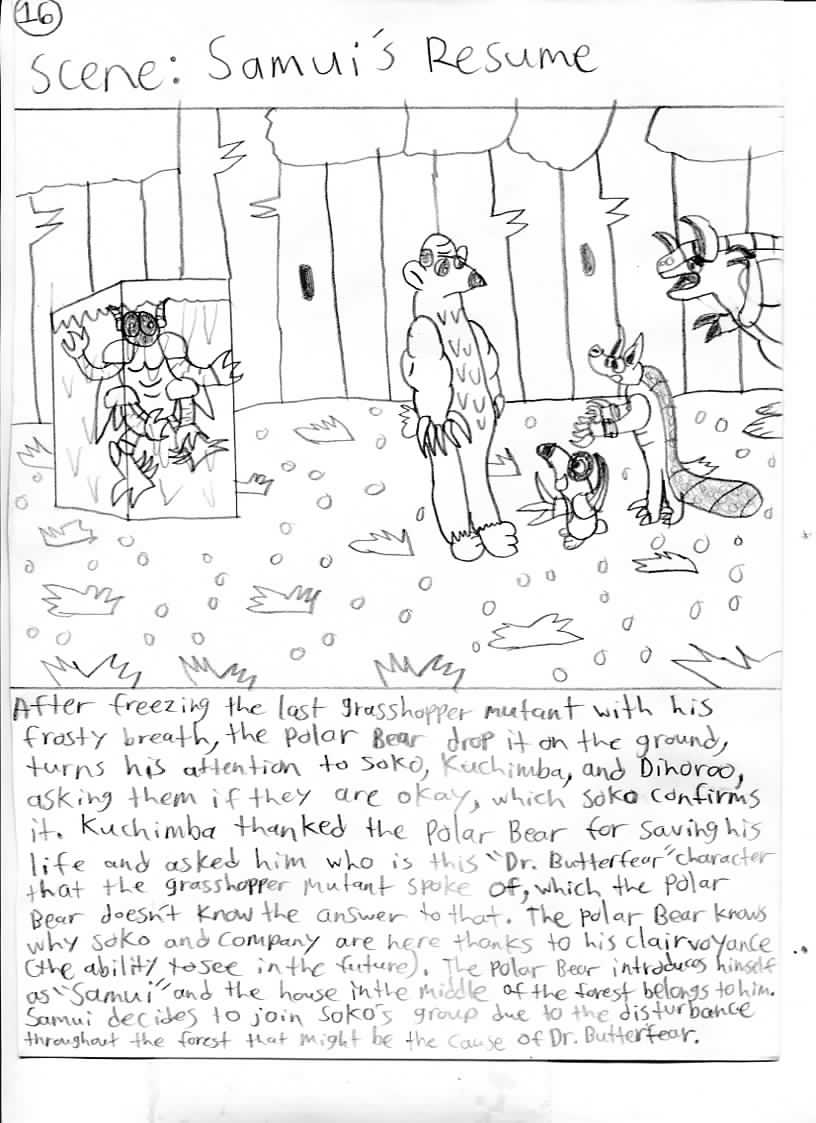 16
Scene: Samui's Resume
After freezing the last grasshopper mutant with his
frosty breath, the Polar Bear drop it on the ground,
turns his attention to Soko, Kuchimba, and Dihoroo,
asking them if they are okay, which Soko confirms
it. Kuchimba thanked the Polar Bear for saving his
life and asked him who is this "Dr. Butterfear" character
that the grasshopper mutant spoke of, which the Polar
Bear doesn't know the answer to that. The Polar Bear knows
why Soko and company are here thanks to his clairvoyance
(the ability to see in the future). The Polar Bear introduces himself
as "Samui" and the house in the middle of the forest belongs to him.
Samui decides to join Soko's group due to the disturbance
throughout the forest that might be the cause of Dr. Butterfear.